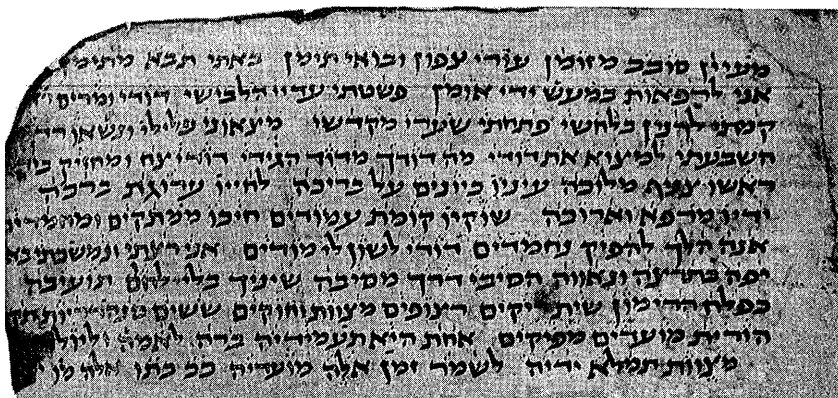 מעיין סובב מזומן עורי צפון ובואי תימן באתי תבא מתימן
אני להפאות במעש ידי אומן פשטתי עדיי הלבישי דודי ומרים
קמתי לרנין בלחשי פתחתי שערי מקדשו מצאוני צלילו ונשאו
השבעתי למצוא את דודי מה דודך מדוד הגידו דודי צח ומחזיה
ראשו צפף מלוכה עיניו כיונים על בריכה לחייו ערוגת ברכה
ידיו מרפא וארוכה שוקיו קומת עמודים חיכו ממתקים ומחמדים
אנה הלך להפיק נחמדים דודי לשון לי מודים אני רצתי ונמשכתי
יפה כתרצה ונאווה הסיבי דרך מסיבה שיניך בלי להם תועיבה
כפלח הרימון שית יקים רצופים מצוות וחוקים ששים
הורית מועדים מפיקים אחת היא תעמידיה ברה לאמה
מצוות תמלא ידיה לשמר זמן אלה מועדיה ככ כתו אלה מו